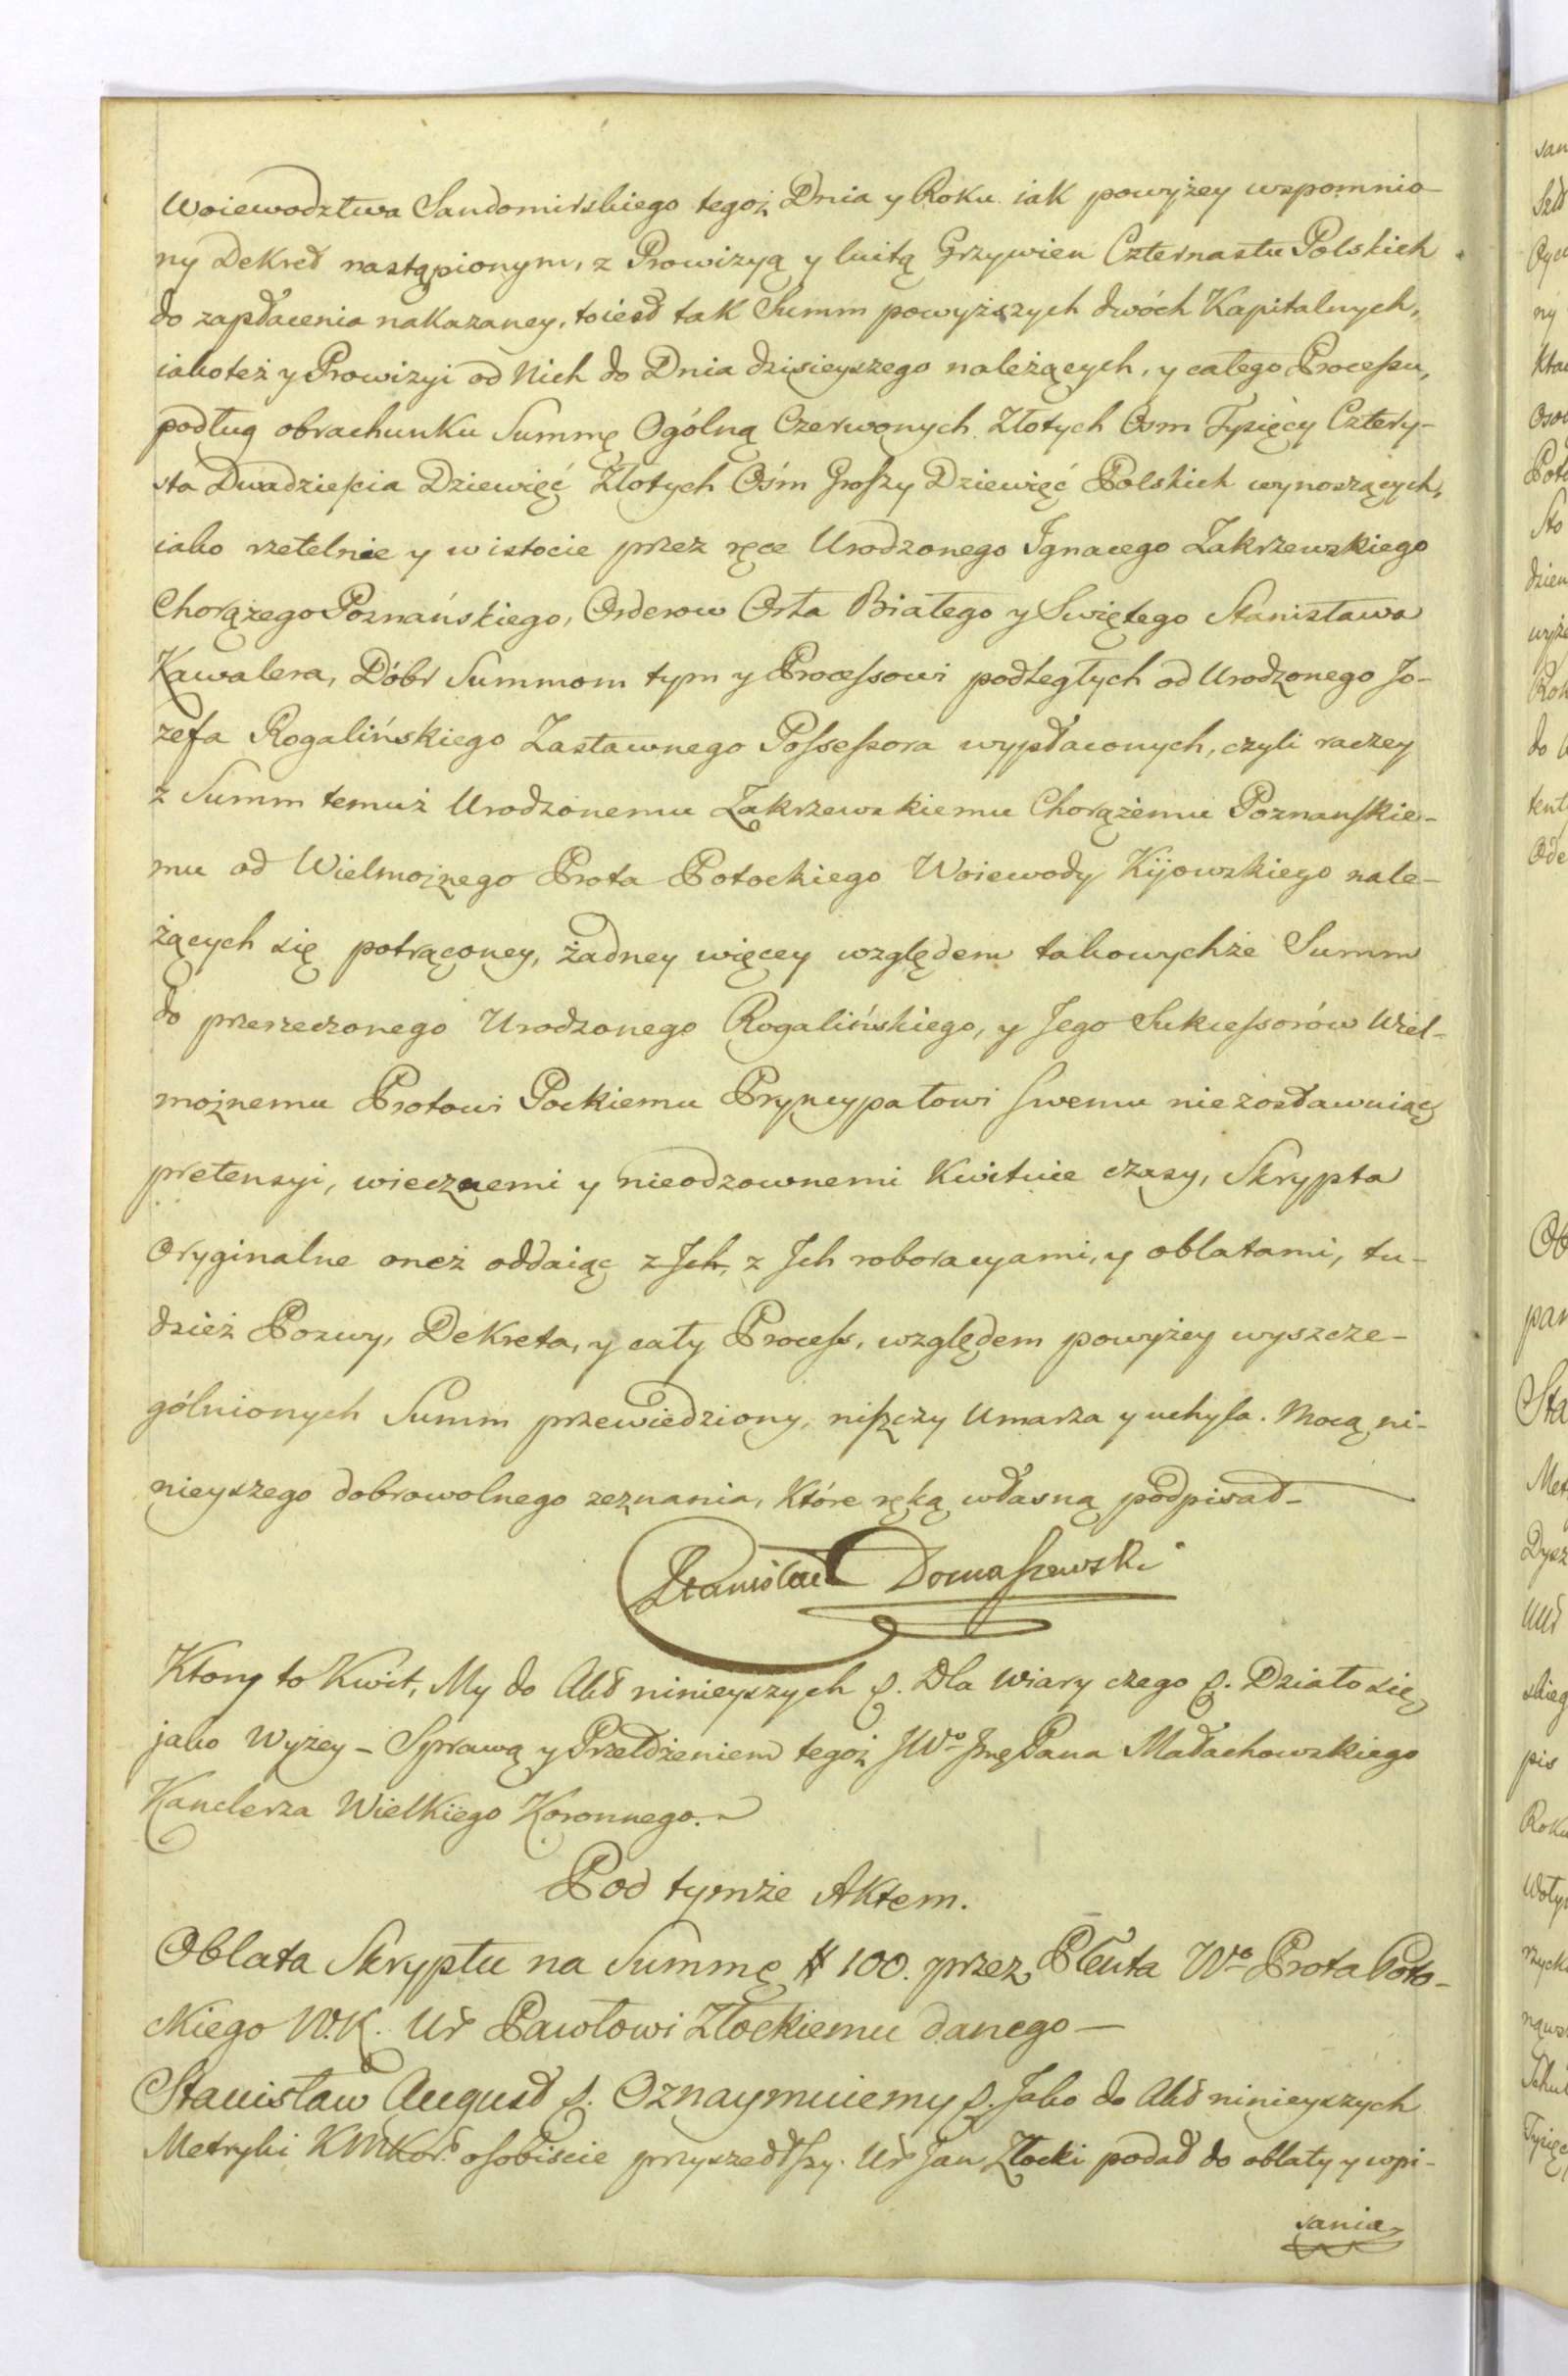 Woiewodztwa Sandomirskiego tegoż Dnia y Roku iak powyżey wspomnio-
ny Dekret nastąpionym, z Prowizyą y luitą Grzywien Czternastu Polskich
do zapłacenia nakazaney, toiest tak Summ powyższych dwóch Kapitalnych,
iakoteż y Prowizyi od Nich do Dnia dzisieyszego należących, y całego Processu,
podług obrachunku Summę Ogólną Czerwonych Złotych Ośm Tysięcy Cztery-
sta Dwadzieścia Dziewięć Złotych Ośm Groszy Dziewięć Polskich wynoszących,
iako rzetelnie y w istocie przez ręce Urodzonego Ignacego Zakrzewskiego
Chorążego Poznańskiego, Orderow Orła Białego y Swiętego Stanisława
Kawalera, Dóbr Summom tym y Processowi podległych od Urodzonego Jo-
zefa Rogalińskiego Zastawnego Possessora wypłaconych, czyli raczey
z Summ temuż Urodzonemu Zakrzewskiemu Chorążemu Poznanskie-
mu od Wielmożnego Prota Potockiego Woiewody Kijowskiego nale-
żących się potrąconey, żadney więcey względem takowychże Summ
do przerzeczonego Urodzonego Rogalińskiego, y Jego Sukcessorów Wiel-
możnemu Protowi Pockiemu Pryncypałowi swemu niezostawuiąc
pretensyi, wiecznemi y nieodzownemi Kwituie czasy, Skrypta
Oryginalne oneż oddaiąc z Jch, z Jch roboracyami, y oblatami, tu-
dzież Pozwy, Dekreta, y cały Process, względem powyżey wyszcze-
gólnionych Summ przewiedziony, niszczy Umarza y uchyla. Mocą ni-
nieyszego dobrowolnego zeznania, Które ręką własną podpisał_
Stanisław Domaszewski
Ktory to Kwit, My do Akt ninieyszych &. Dla Wiary czego &. Działo się
jako Wyżey – Sprawą y Przełożeniem tegoż JWo Jmę Pana Małachowskiego
Kanclerza Wielkiego Koronnego.
Pod tymże Aktem.
Oblata Skryptu na Summę # 100. przez Plenta Wo Prota Poto-
ckiego W.K. Ur Pawłowi Złockiemu danego —
Stanisław August &. Oznaymuiemy &. Jako do Akt ninieyszych
Metryki KMKor. osobiscie przyszedłszy. Ur Jan Złocki podał do oblaty y wpi-
sania